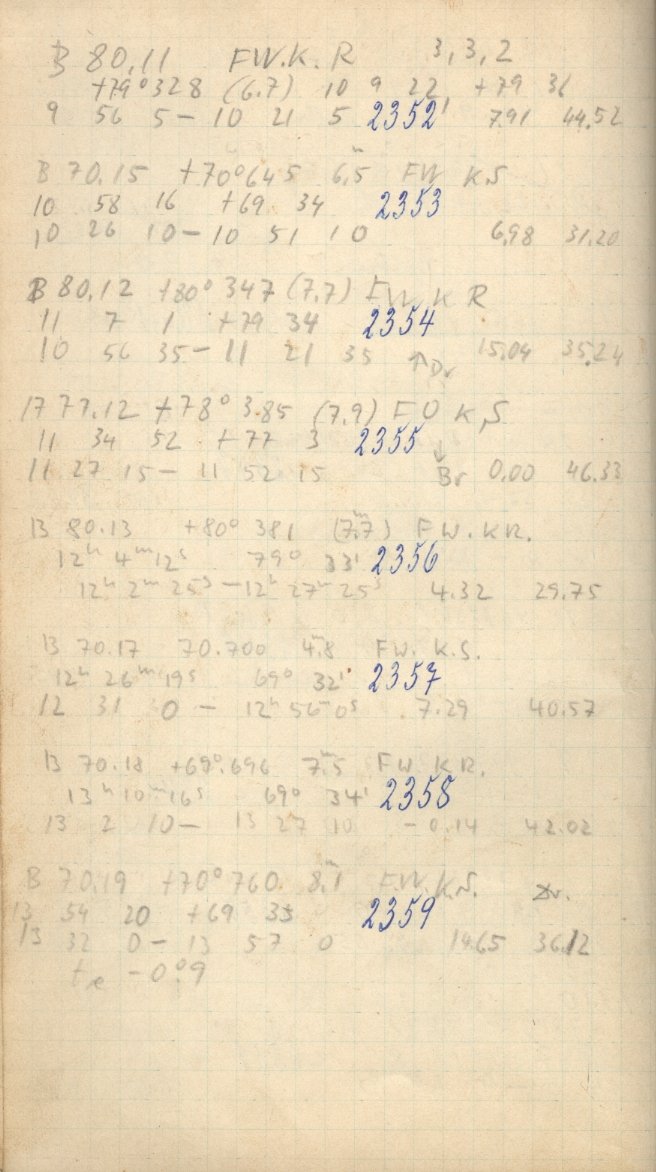 B 80,11 FW.K.R 3,3,2
+79° 328 (6.7) 10 9 22 +79 31
9 56 5 – 10 21 5 2352 7.91 44.52
B 70.15 +70° 645 6,5 FW KS
10 58 16 +69 34 2353
10 26 10 – 10 51 10 6,98 31.20
B 80,12 +80° 347 (7,7) FW.K R
11 7 1 +79 34 2354
10 56 35 – 11 21 35 ↑Dr 15.04 35,24
77.12 +78° 385 (7,9) FO K,S
11 34 52 +77 3 2355
11 27 15 – 11 52 15 ↓Br 0,00 46.33
B 80.13 +80° 381 (7.ᵐ7) FW.KR.
12ʰ 4ᵐ 12ˢ 79° 33' 2356
12ʰ 2ᵐ 25ˢ – 12ʰ 27ᵐ 25ˢ 4.32 29.75
B 70.17 70.700 4.ᵐ8 FW. K.S.
12ʰ 26ᵐ 19ˢ 69° 32' 2357
12 31 0 – 12ʰ 56ᵐ 0ˢ 7.29 40.57
B 70.18 +69°.696 7.ᵐ5 FW KR.
13ʰ 10ᵐ 16ˢ 69° 34' 2358
13 2 10 – 13 27 10 – 0.14 42.02
B 70,19 +70° 760. 8.ᵐ1 F.W.K.S. Dr.
13 54 20 +69 33 2359
13 32 0 – 13 57 0 14.65 36.12
tₑ – 0°.9